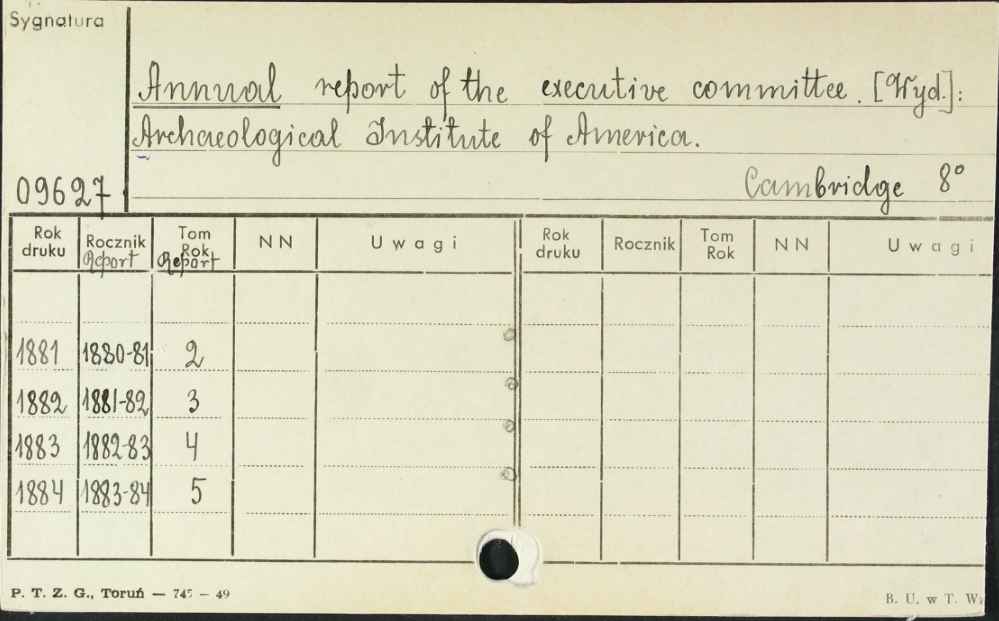 Sygnatura
Annual report of the executive committee. [Wyd.]:
Archaeological Institute of America.
Cambridge 8°
09627
Rok druku Rocznik Report Tom Rok Report NN Uwagi Rok druku Rocznik Tom Rok NN Uwagi
1881 1880-81 2
1882 1881-82 3
1883 1882-83 4
1884 1883-84 5
P. T. Z. G., Toruń — 745 — 49
B. U. w T. W